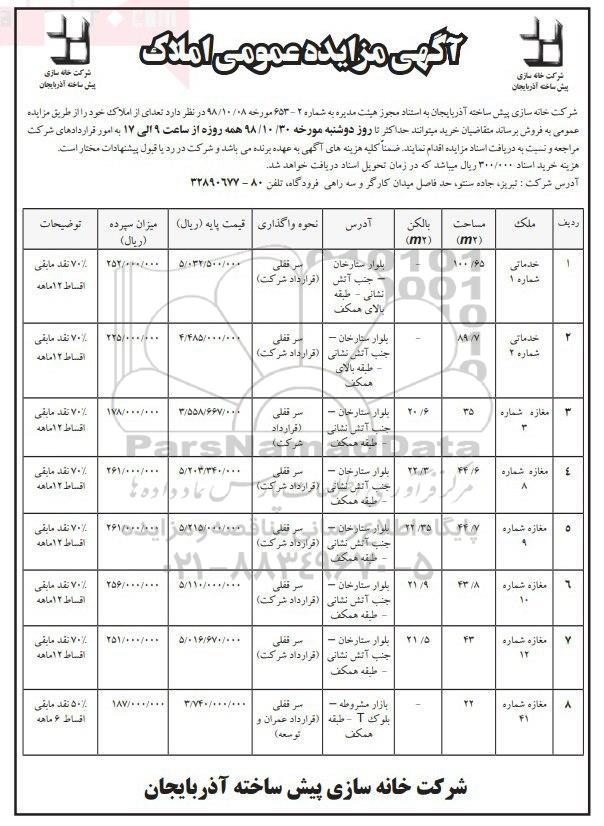 آگهی مزایده عمومی املاک
شرکت خانه سازی
پیش ساخته آذربایجان
شرکت خانه سازی
پیش ساخته آذربایجان
شرکت خانه سازی پیش ساخته آذربایجان به استناد مجوز هیئت مدیره به شماره ۲ - ۶۵۳ مورخه ۹۸/۱۰/۰۸ در نظر دارد تعدای از املاک خود را از طریق مزایده
عمومی به فروش برساند متقاضیان خرید میتوانند حداکثر تا روز دوشنبه مورخه ۹۸/۱۰/۳۰ همه روزه از ساعت ۹ الی ۱۷ به امور قراردادهای شرکت
مراجعه و نسبت به دریافت اسناد مزایده اقدام نمایند. ضمناً کلیه هزینه های آگهی به عهده برنده می باشد و شرکت در رد یا قبول پیشنهادات مختار است.
هزینه خرید اسناد ۳۰۰/۰۰۰ ریال میباشد که در زمان تحویل اسناد دریافت خواهد شد.
آدرس شرکت : تبریز، جاده سنتو، حد فاصل میدان کارگر و سه راهی فرودگاه، تلفن ۸۰ - ۳۲۸۹۰۶۷۷
ردیف ملک مساحت (m۲) بالکن (m۲) آدرس نحوه واگذاری قیمت پایه (ریال) میزان سپرده (ریال) توضیحات
۱ خدماتی شماره ۱ ۱۰۰/۶۵ بلوار ستارخان – جنب آتش نشانی - طبقه بالای همکف سر قفلی (قرارداد شرکت) ۵/۰۳۲/۵۰۰/۰۰۰ ۲۵۲/۰۰۰/۰۰۰ ۷۰٪ نقد مابقی اقساط ۱۲ماهه
۲ خدماتی شماره ۲ ۸۹/۷ - بلوار ستارخان – جنب آتش نشانی - طبقه بالای همکف سر قفلی (قرارداد شرکت) ۴/۴۸۵/۰۰۰/۰۰۰ ۲۲۵/۰۰۰/۰۰۰ ۷۰٪ نقد مابقی اقساط ۱۲ماهه
۳ مغازه شماره ۳ ۳۵ ۲۰/۶ بلوار ستارخان – جنب آتش نشانی - طبقه همکف سر قفلی (قرارداد شرکت) ۳/۵۵۸/۶۶۷/۰۰۰ ۱۷۸/۰۰۰/۰۰۰ ۷۰٪ نقد مابقی اقساط ۱۲ماهه
۴ مغازه شماره ۸ ۴۴/۶ ۲۲/۳ بلوار ستارخان – جنب آتش نشانی - طبقه همکف سر قفلی (قرارداد شرکت) ۵/۲۰۳/۳۴۰/۰۰۰ ۲۶۱/۰۰۰/۰۰۰ ۷۰٪ نقد مابقی اقساط ۱۲ماهه
۵ مغازه شماره ۹ ۴۴/۷ ۲۲/۳۵ بلوار ستارخان – جنب آتش نشانی - طبقه همکف سر قفلی (قرارداد شرکت) ۵/۲۱۵/۰۰۰/۰۰۰ ۲۶۱/۰۰۰/۰۰۰ ۷۰٪ نقد مابقی اقساط ۱۲ماهه
۶ مغازه شماره ۱۰ ۴۳/۸ ۲۱/۹ بلوار ستارخان – جنب آتش نشانی - طبقه همکف سر قفلی (قرارداد شرکت) ۵/۱۱۰/۰۰۰/۰۰۰ ۲۵۶/۰۰۰/۰۰۰ ۷۰٪ نقد مابقی اقساط ۱۲ماهه
۷ مغازه شماره ۱۲ ۴۳ ۲۱/۵ بلوار ستارخان – جنب آتش نشانی - طبقه همکف سر قفلی (قرارداد شرکت) ۵/۰۱۶/۶۷۰/۰۰۰ ۲۵۱/۰۰۰/۰۰۰ ۷۰٪ نقد مابقی اقساط ۱۲ماهه
۸ مغازه شماره ۴۱ ۲۲ - بازار مشروطه – بلوک T - طبقه همکف سر قفلی (قرارداد عمران و توسعه) ۳/۷۴۰/۰۰۰/۰۰۰ ۱۸۷/۰۰۰/۰۰۰ ۵۰٪ نقد مابقی اقساط ۶ ماهه
ParsNamadData
مرکز فرآوری اطلاعات پارس نماد داده ها
پایگاه اطلاع رسانی مناقصه و مزایده
۰۲۱-۸۸۳۴۹۶۷۰-۵
شرکت خانه سازی پیش ساخته آذربایجان